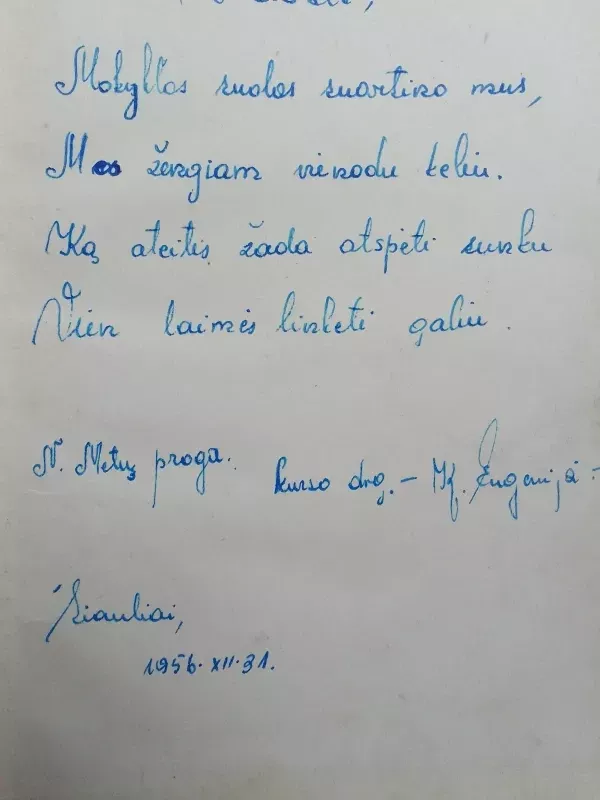 Mokyklos suolas suartino mus,
Mes žengiam vienodu keliu.
Ką ateitis žada atspėti sunku
Vien laimės linkėti galiu.
N. Metų proga.
kurso drg. – Kf. Eugenija –
Šiauliai,
1956.XII.31.